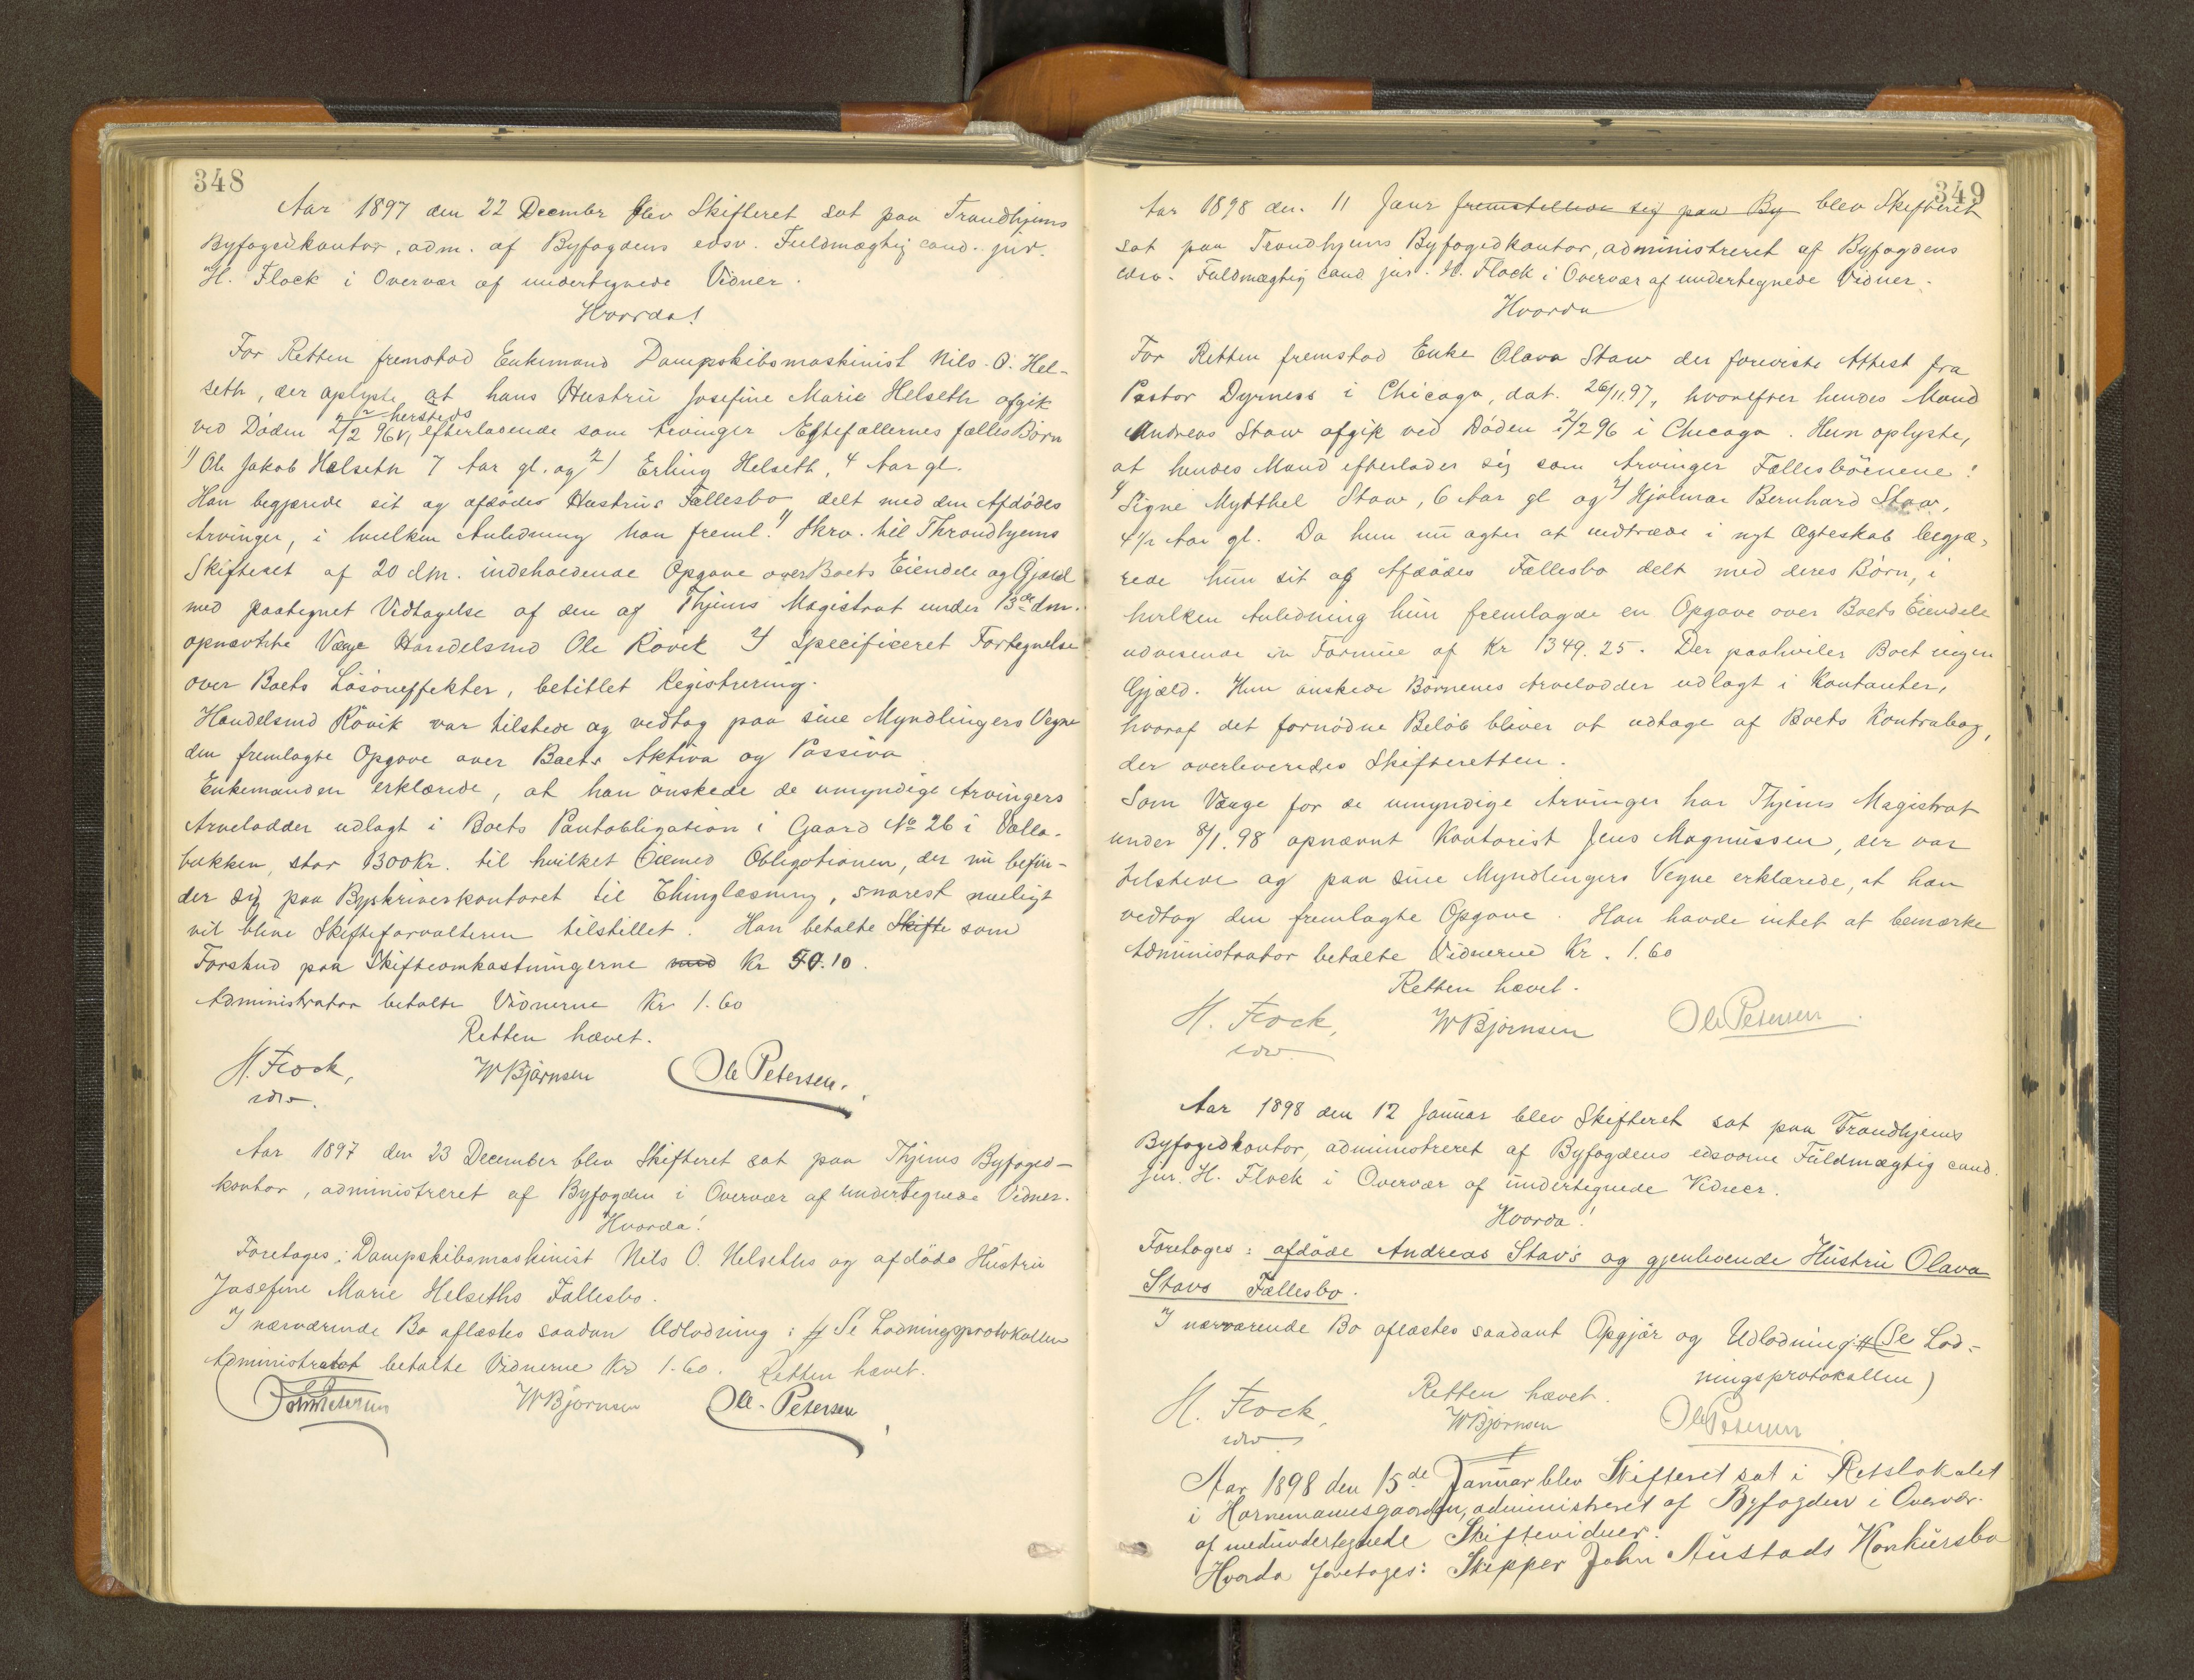 348
Aar 1897 den 22 December blev Skifteret sat paa Trondhjems
Byfogedkontor, adm. af Byfogdens edsv. Fuldmægtig cand. jur.
H. Flock i Overvær af undertegnede Vidner.
Hvorda!
For Retten fremstod Enkemand Dampskibsmaskinist Nils O. Hel-
seth, der oplyste at hans Hustru Josefine Marie Helseth afgik
hersteds
ved Døden 2/2 96 efterladende som Arvinger Ægtefællernes fælles Børn
1) Ole Jakob Helseth 7 Aar gl. og 2) Erling Helseth, 4 Aar gl.
Han begjærede sit og afdødes Hustrus Fællesbo delt med den Afdødes
Arvinger, i hvilken Anledning han freml. 1) Skrv. til Throndhjems
Skifteret af 20 dm. indeholdende Opgave over Boets Eiendele og Gjæld
med paategnet Vedtagelse af den af Thjems Magistrat under 13de dm.
opnævnte Værge Handelsmd Ole Rövik 2) Specificeret Fortegnelse
over Boets Lösöreeffekter, betitlet Registrering.
Handelsmd Rövik var tilstede og vedtog paa sine Myndlingers Vegne
den fremlagte Opgave over Boets Aktiva og Passiva
Enkemanden erklærede, at han önskede de umyndige Arvingers
Arvelodder udlagt i Boets Pantobligation i Gaard No 26 i Volla-
bakken, stor 1300 Kr. til hvilket Öiemed Obligationen, der nu befin-
der sig paa Byskriverkontoret til Thinglæsning, snarest muligt
vil blive Skifteforvalteren tilstillet. Han betalte Skifte som
Forskud paa Skifteomkostningerne med Kr 50.10.
Administrator betalte Vidnerne Kr 1.60
Retten hævet.
H. Flock, W Bjørnsen Ole Petersen.
edsv.
Aar 1897 den 23 December blev Skifteret sat paa Thjems Byfoged-
kontor, administreret af Byfogden i Overvær af undertegnede Vidner.
Hvorda!
Foretoges: Dampskibsmaskinist Nils O. Helseths og afdöde Hustru
Josefine Marie Helseths Fællesbo.
I nærværende Bo aflæstes saadan Udlodning: # Se Lodningsprotokollen
Administrator betalte Vidnerne Kr 1.60. Retten hævet.
W Bjørnsen Ole Petersen
349
Aar 1898 den 11 Janr fremstillede sig paa By blev Skifteret
sat paa Trondhjems Byfogedkontor, administreret af Byfogdens
edsv. Fuldmægtig cand jur. H. Flock i Overvær af undertegnede Vidner.
Hvorda
For Retten fremstod Enke Olava Stav der foreviste Attest fra
Pastor Dyrness i Chicago, dat. 26/11.97, hvorefter hendes Mand
Andreas Stav afgik ved Döden 2/2 96 i Chicago. Hun oplyste,
at hendes Mand efterlader sig som Arvinger Fællesbörnene:
1) Signe Stav, 6 Aar gl og 2) Hjalmar Bernhard Stav,
4 1/2 Aar gl. Da hun nu agter at indtræde i nyt Ægteskab begjæ-
rede hun sit og Afdödes Fællesbo delt med deres Börn, i
hvilken Anledning hun fremlagde en Opgave over Boets Eiendele
udvisende en Formue af Kr 1349.25. Der paahviler Boet ingen
Gjæld. Hun önskede Börnenes Arvelodder udlagt i Kontanter,
hvoraf det fornödne Belöb bliver at udtage af Boets Kontrabog,
der overleveredes Skifteretten.
Som Værge for de umyndige Arvinger har Thjems Magistrat
under 8/1.98 opnævnt Kontorist Jens Magnussen, der var
tilstede og paa sine Myndlingers Vegne erklærede, at han
vedtog den fremlagte Opgave. Han havde intet at bemærke
Administrator betalte Vidnerne Kr. 1.60
Retten hævet.
H. Flock, W Bjørnsen Ole Petersen.
edsv.
Aar 1898 den 12 Januar blev Skifteret sat paa Trondhjems
Byfogedkontor, administreret af Byfogdens edsvorne Fuldmægtig cand.
jur. H. Flock i Overvær af undertegnede Vidner.
Hvorda!
Foretoges: afdöde Andreas Stav's og gjenlevende Hustru Olava
Stavs Fællesbo.
I nærværende Bo aflæstes saadant Opgjör og Udlodning: # (Se Lod-
ningsprotokollen)
Retten hævet.
H. Flock, W Bjørnsen Ole Petersen
edsv.
Aar 1898 den 15de Januar blev Skifteret sat i Retslokalet
i Hornemannsgaarden, administreret af Byfogden i Overvær
af medundertegnede Skiftevidner.
Hvorda foretoges: Skipper John Austads Konkursbo